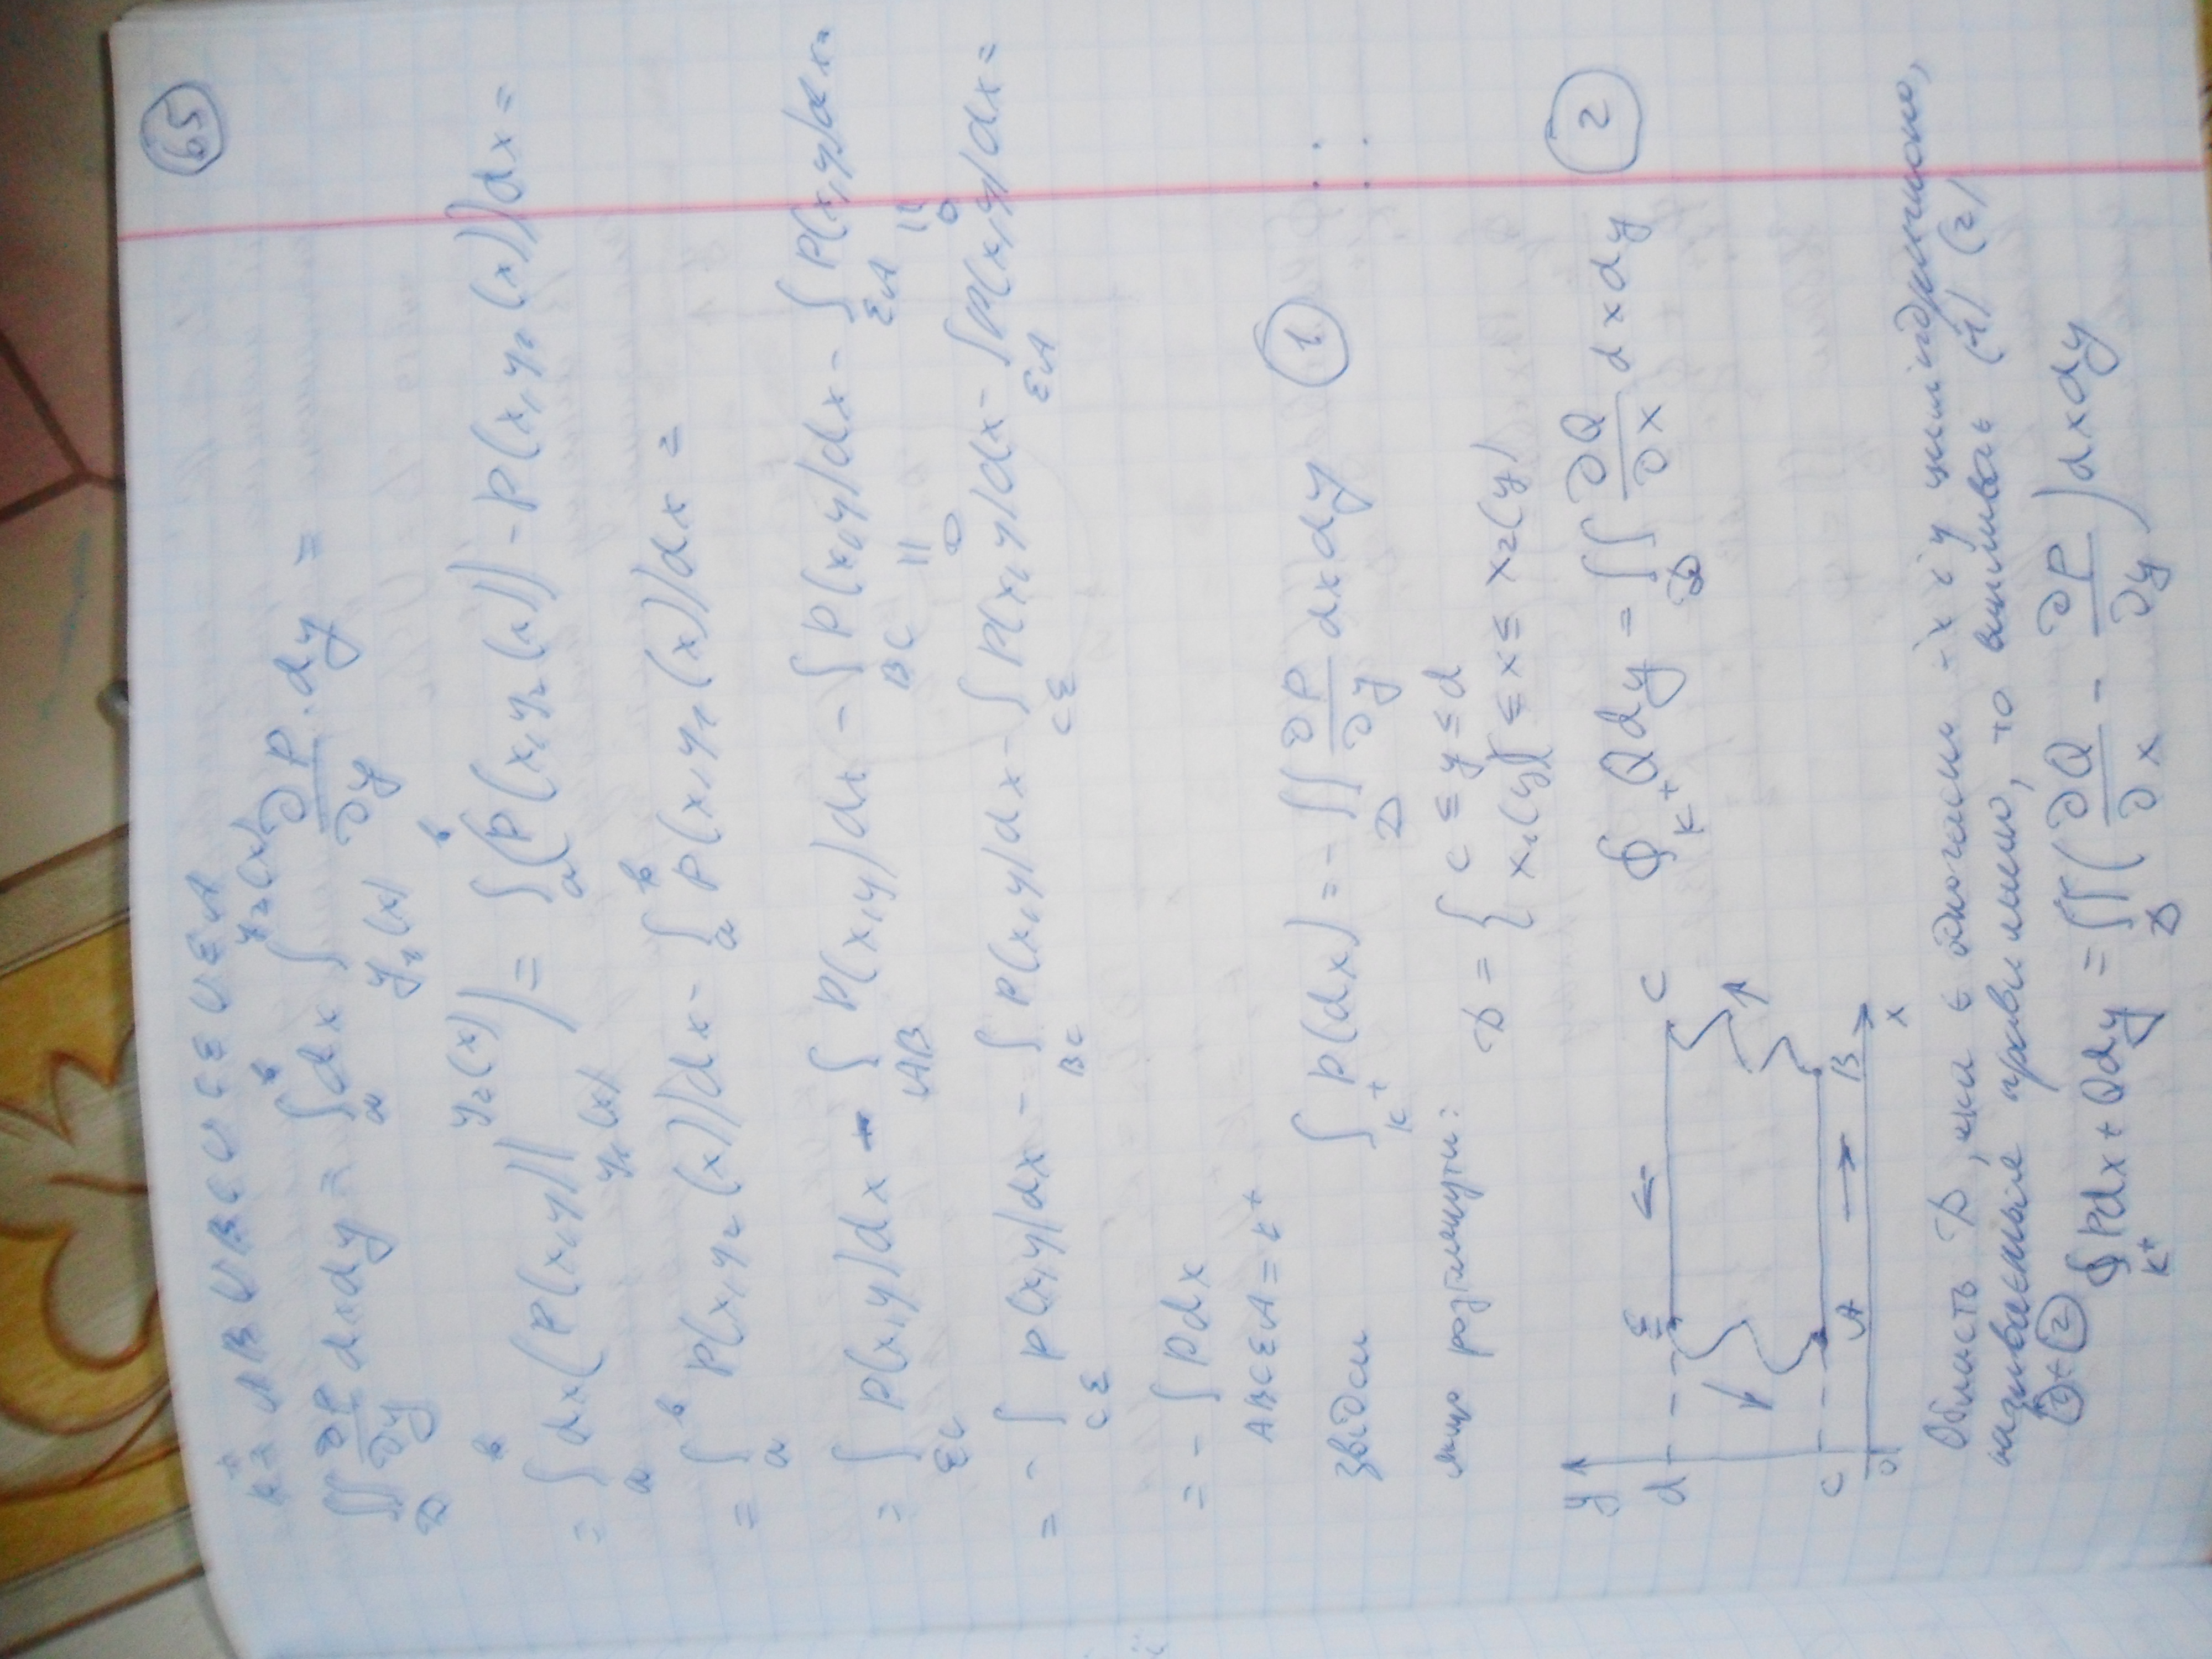 65
K⁺ = AB ∪ BC ∪ CE ∪ EA
∬_D ∂P/∂y dxdy = ∫_a^b dx ∫_{y₁(x)}^{y₂(x)} ∂P/∂y · dy =
= ∫_a^b dx (P(x,y)|_{y₁(x)}^{y₂(x)}) = ∫_a^b (P(x,y₂(x)) - P(x,y₁(x)))dx =
= ∫_a^b P(x,y₂(x))dx - ∫_a^b P(x,y₁(x))dx =
= ∫_{EC} P(x,y)dx - ∫_{AB} P(x,y)dx - ∫_{BC} P(x,y)dx - ∫_{EA} P(x,y)dx =
|| 0 || 0
= - ∫_{CE} P(x,y)dx - ∫_{BC} P(x,y)dx - ∫_{CE} P(x,y)dx - ∫_{EA} P(x,y)dx =
= - ∫ Pdx
ABCEA = K⁺
звідси ∫_{K⁺} P(dx) = - ∬_D ∂P/∂y dxdy (1)
якщо розглянути:
D = { c ≤ y ≤ d
x₁(y) ≤ x ≤ x₂(y)
∮_{K⁺} Qdy = ∬_D ∂Q/∂x dxdy (2)
y
d E C
c A B
0 x
Область D, яка є одночасно -х і у циліндричною,
називається правильною, то випливає (1) (2)
(1)+(2)
∮_{K⁺} Pdx + Qdy = ∬_D (∂Q/∂x - ∂P/∂y) dxdy